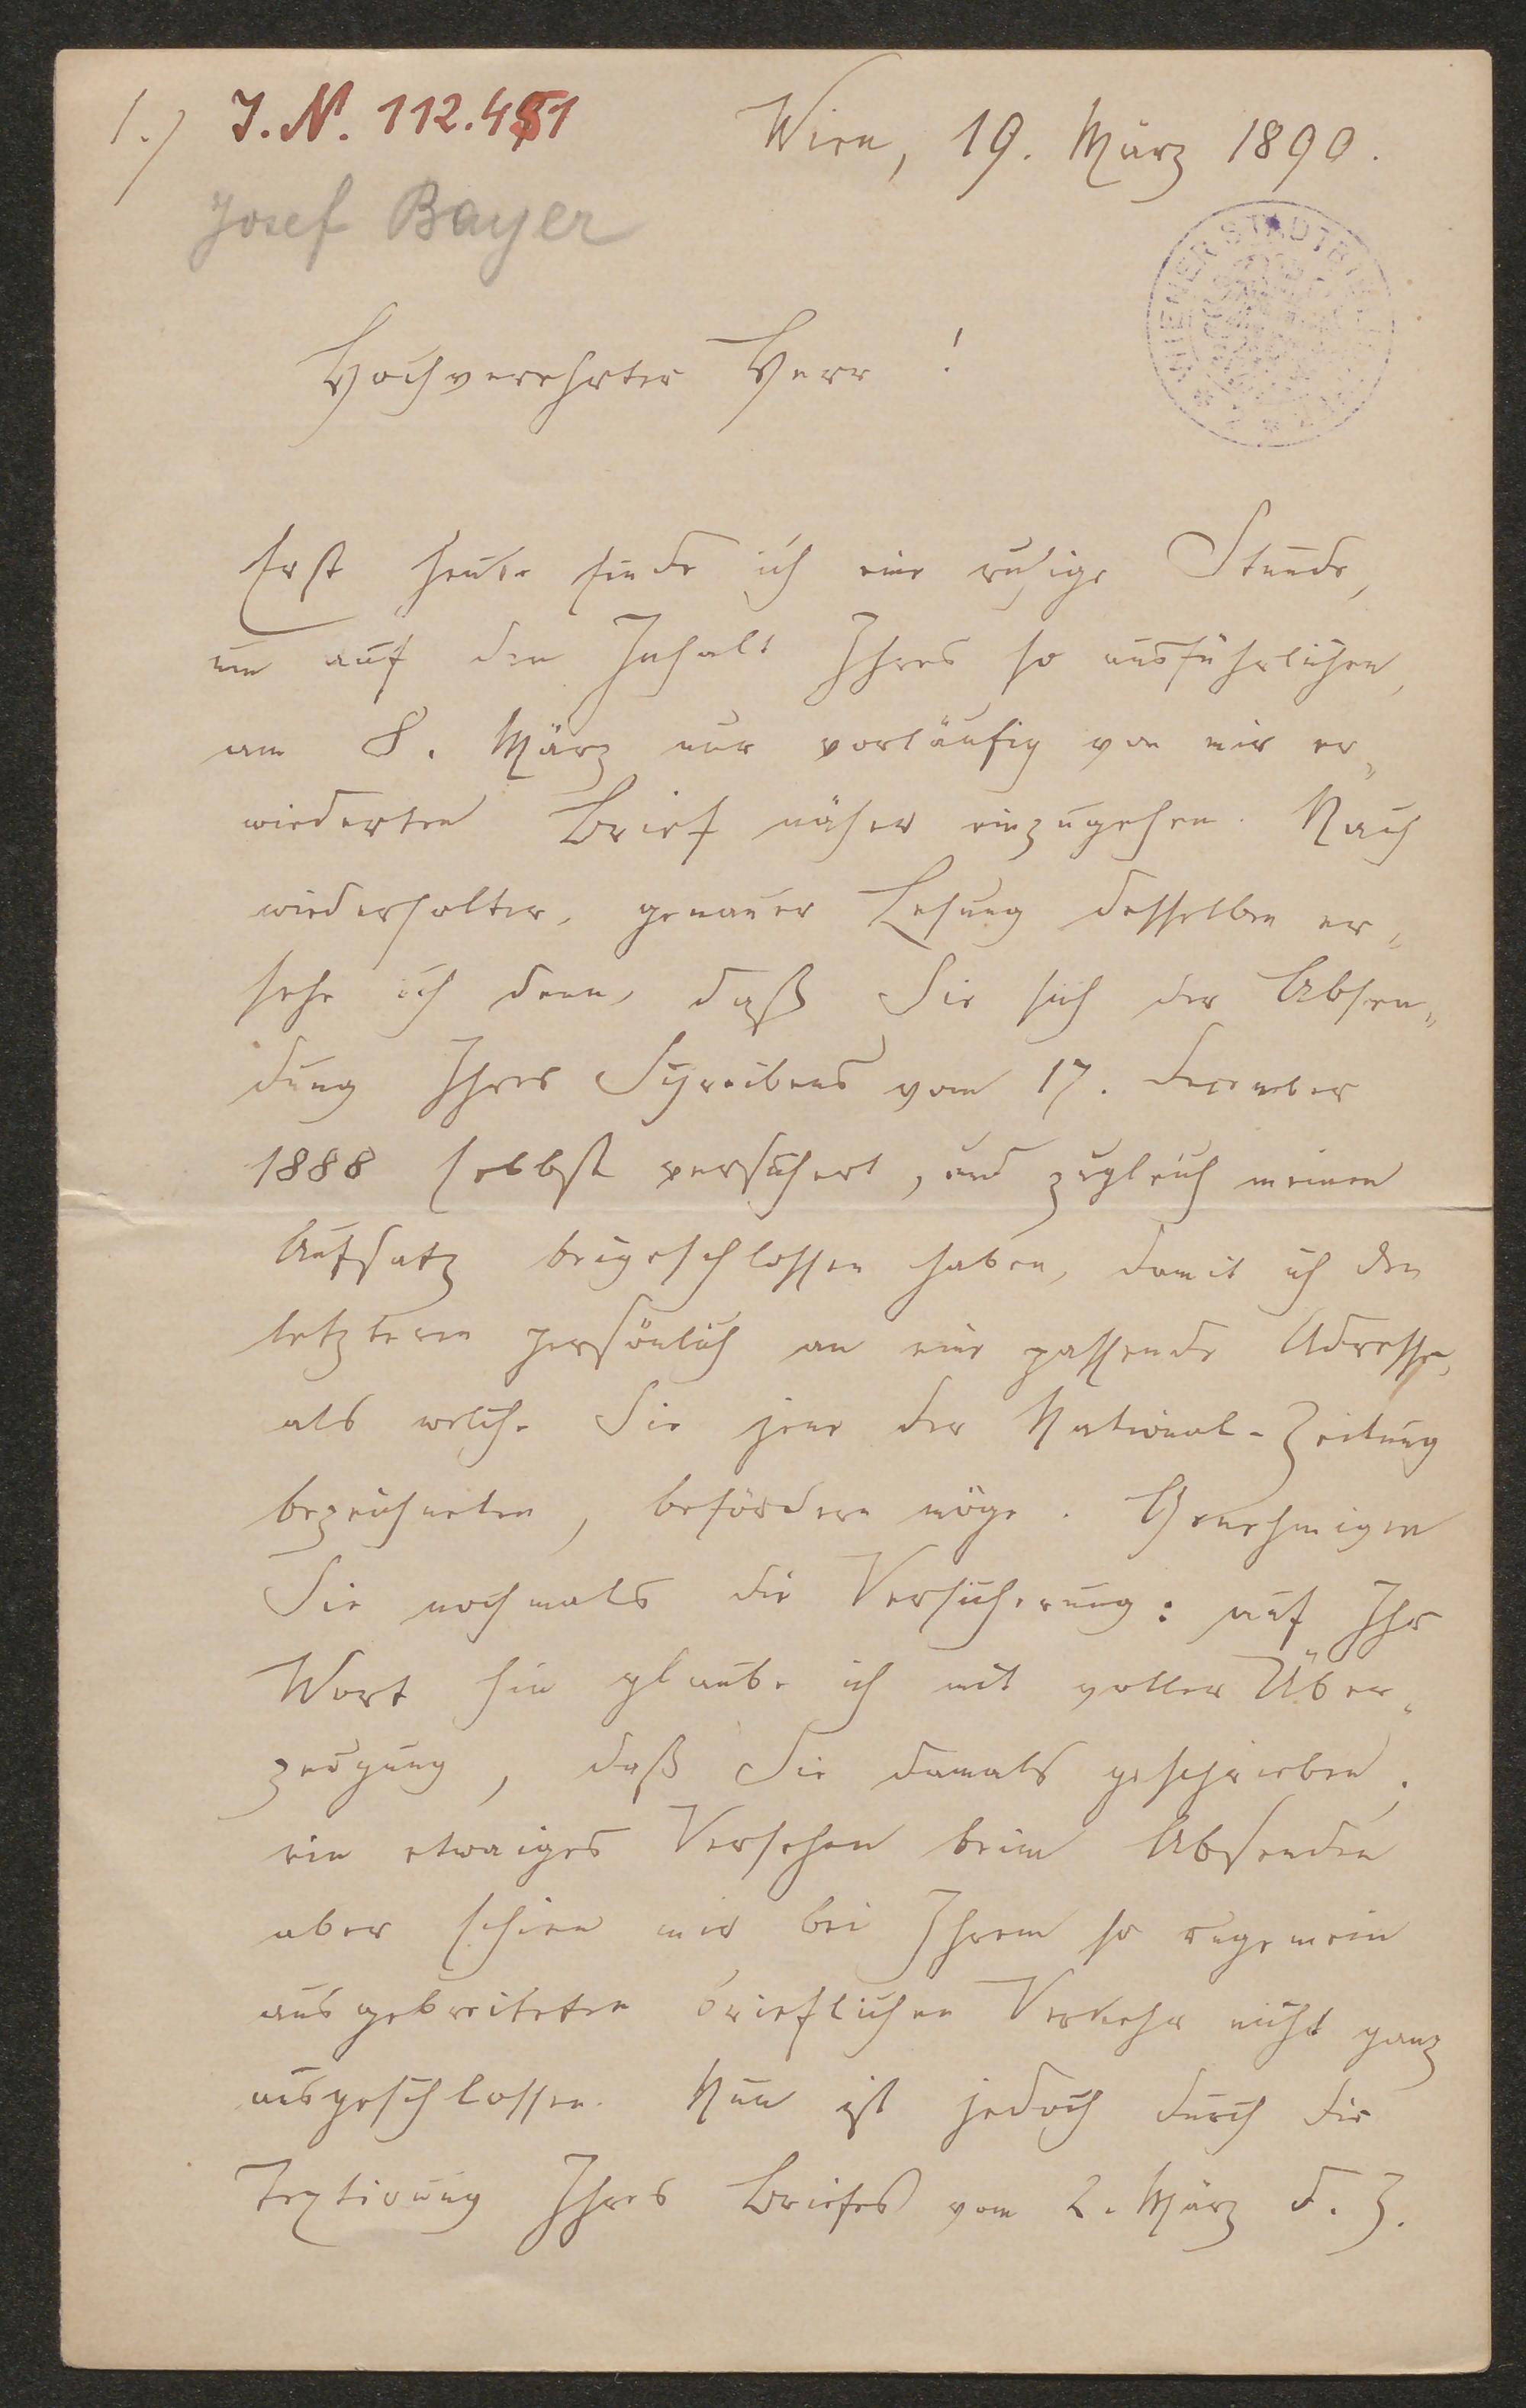 1.) J. N. 112.451
Wien, 19. März 1890.
Josef Bayer
WIENER STADTBI
Hochverehrter Herr!
Erst heute finde ich eine ruhige Stunde,
um auf den Inhalt Ihres so ausführlichen,
am 8. März nur vorläufig von mir er„
wiederten Brief näher einzugehen. Nach
wiederholter, genauer Lesung desselben er„
sehe ich denn, daß Sie sich der Absen„
dung Ihres Schreibens vom 17. December
1888 selbst versichert, und zugleich meinen
Aufsatz beigeschlossen haben, damit ich den
letzteren persönlich an eine passende Adresse,
als welche Sie jene der National-Zeitung
bezeichneten, befördern möge. Genehmigen
Sie nochmals die Versicherung: auf Ihr
Wort hin glaube ich mit voller Über„
zeugung, daß Sie damals geschrieben;
ein etwaiges Versehen beim Absenden
aber schien mir bei Ihrem so ungemein
ausgebreiteten brieflichen Verkehr nicht ganz
ausgeschlossen. Nun ist jedoch durch die
Textirung Ihres Briefes vom 2. März d. J.